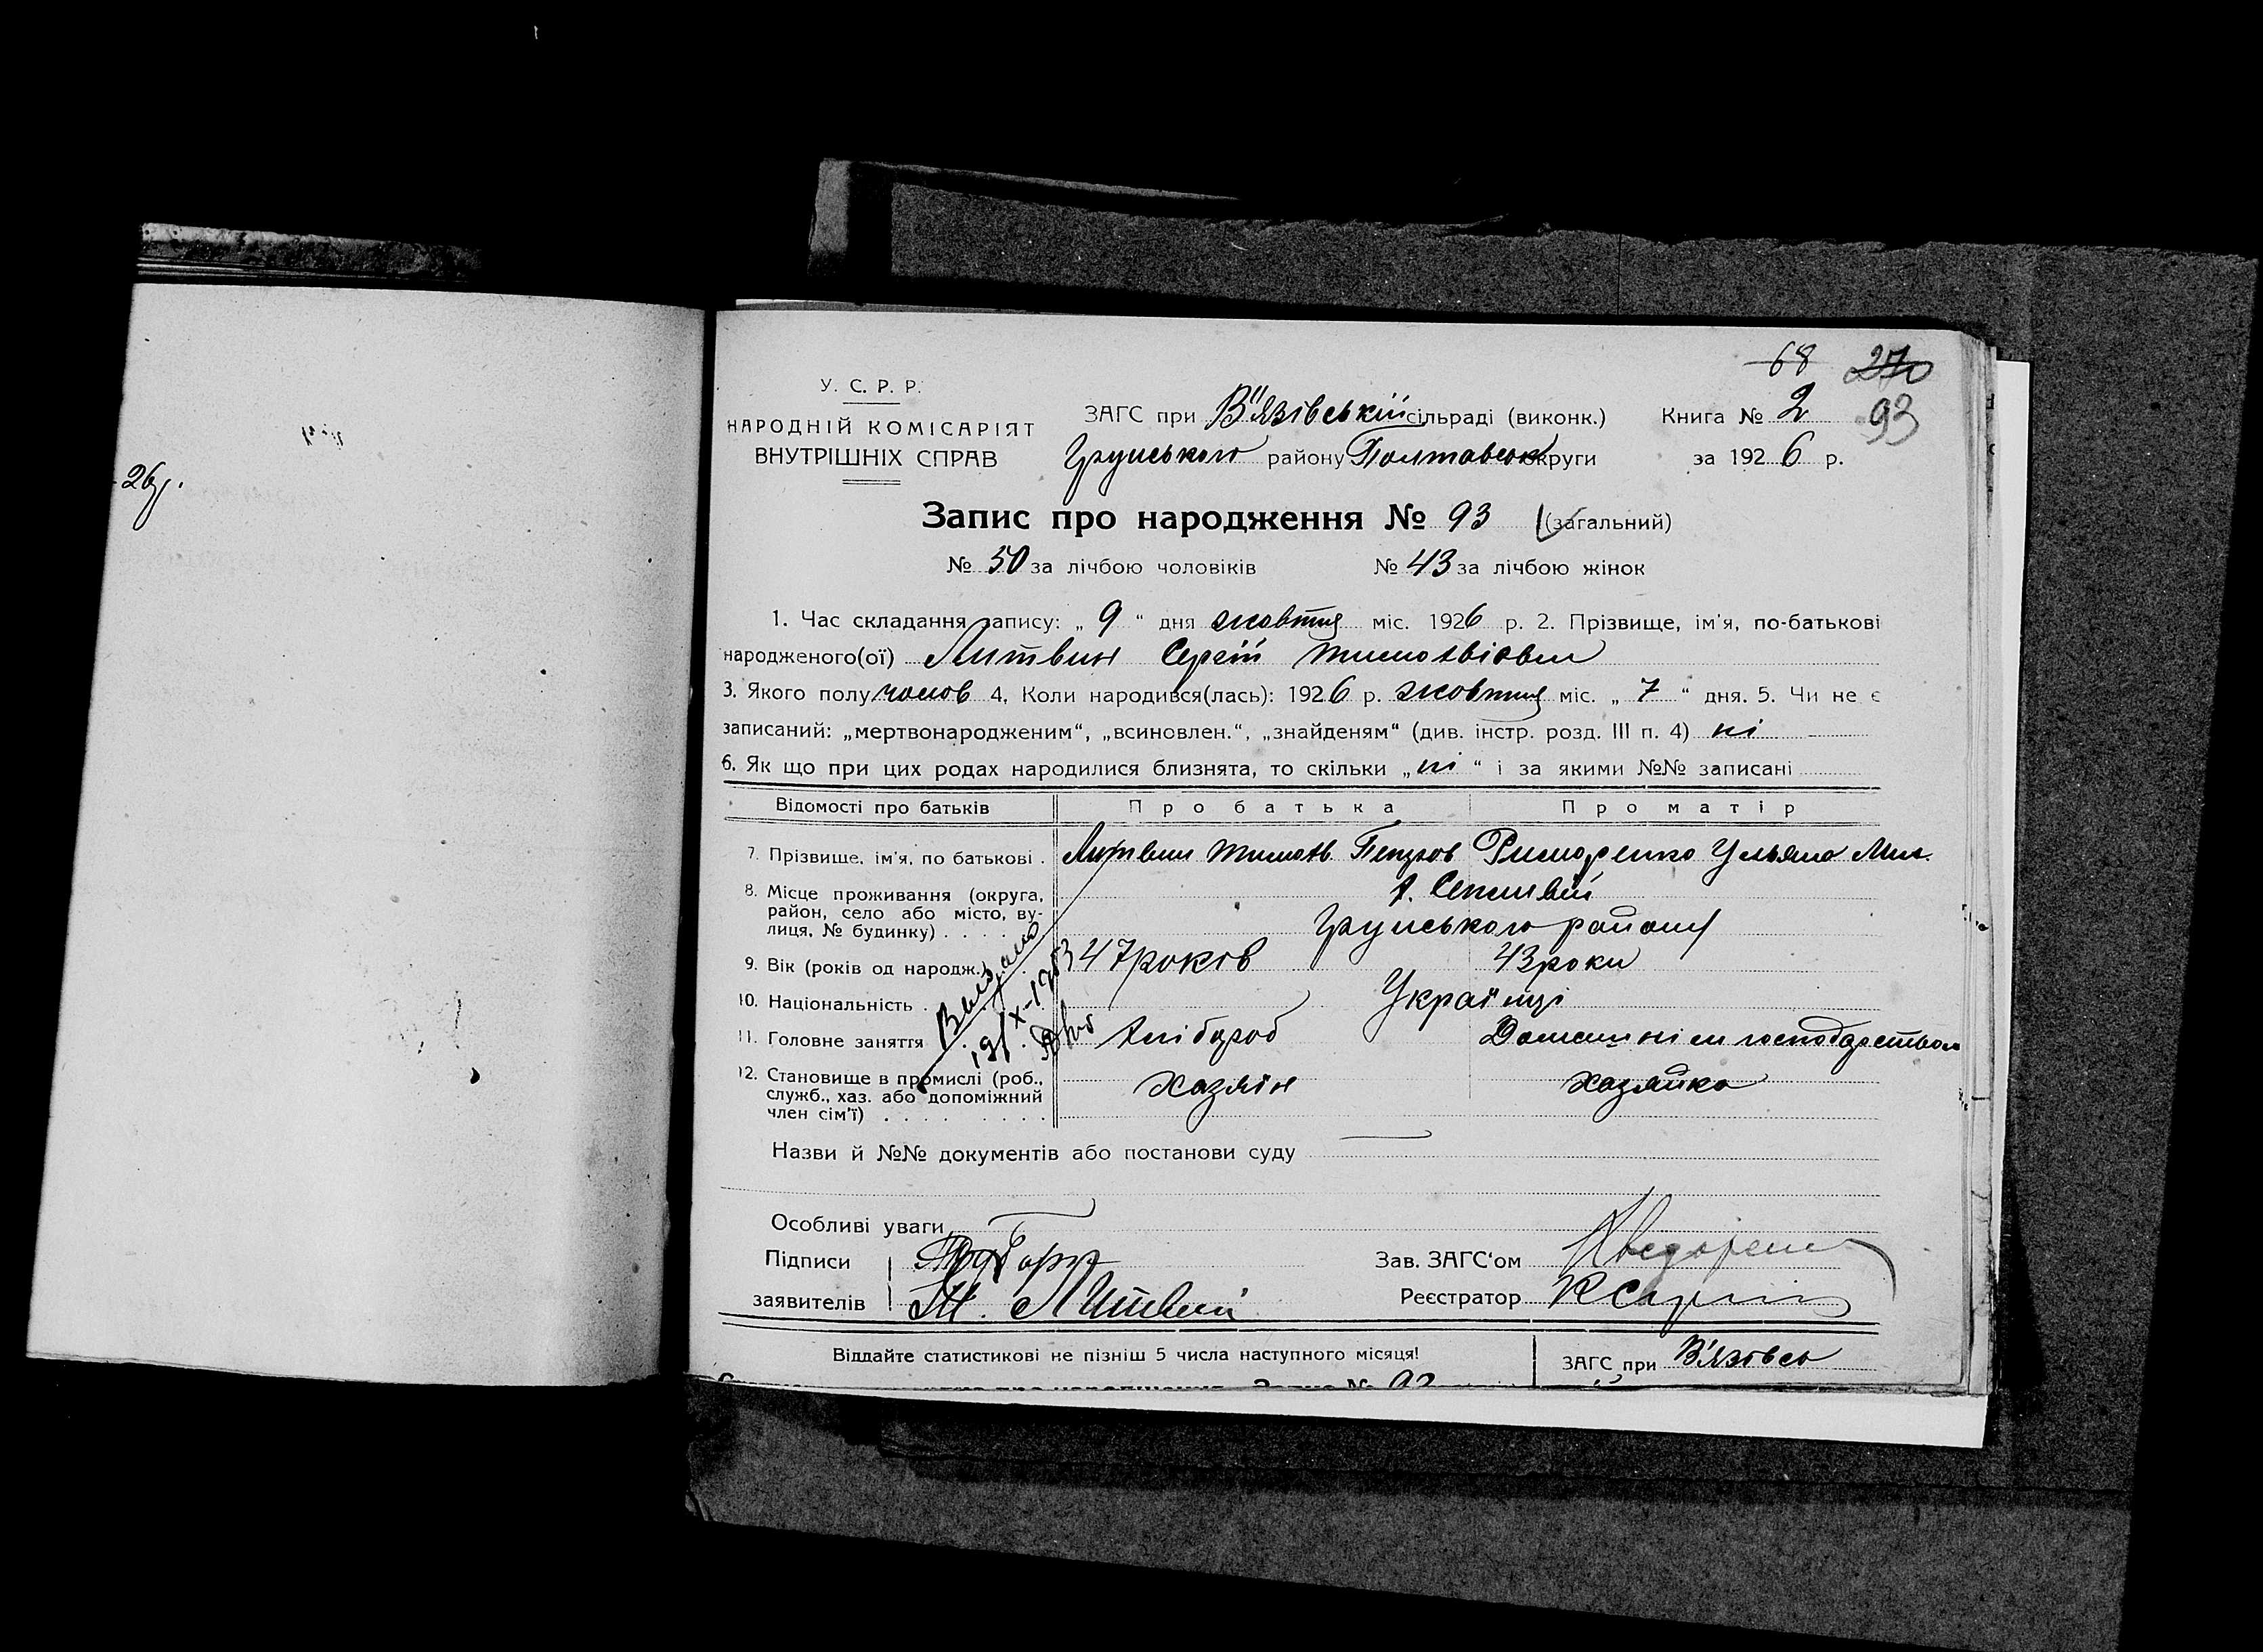 26р.
68 270
У. С. Р. Р.
НАРОДНІЙ КОМІСАРІЯТ
ВНУТРІШНІХ СПРАВ
ЗАГС при В'язівській сільраді (виконк.)
Грунського району Полтавськ округи
Книга № 2 93
за 1926 р.
Запис про народження № 93 (загальний)
№ 50 за лічбою чоловіків № 43 за лічбою жінок
1. Час складання запису: „ 9 “ дня жовтня міс. 1926 р. 2. Прізвище, ім'я, по-батькові
народженого(ої) Литвин Сергій Тимофвіович
3. Якого полу чолов 4. Коли народився(лась): 1926 р. жовтня міс. „ 7 “ дня. 5. Чи не є
записаний: „мертвонародженим“, „всиновлен.“, „знайденям“ (див. інстр. розд. III п. 4) ні
6. Як що при цих родах народилися близнята, то скільки „ ні “ і за якими №№ записані
Відомості про батьків Про батька Про матір
7. Прізвище, ім'я, по батькові . Литвин Тимофв Петров Римаренко Ульяна Мих.
8. Місце проживання (округа,
район, село або місто, ву-
лиця, № будинку) . . . .
Грунського району
9. Вік (років од народж.) 47 років 43 роки
10. Національність . Українці
11. Головне заняття Хлібороб Домашнім господарством
12. Становище в промислі (роб.,
служб., хаз. або допоміжний
член сім'ї) . . . . . . . .
Хазяїн Хазяйка
Выдано
Назви й №№ документів або постанови суду
Особливі уваги
Підписи
заявителів Т. Литвин
Зав. ЗАГС‘ом
Реєстратор
Віддайте статистикові не пізніш 5 числа наступного місяця!
ЗАГС при В'язівсь